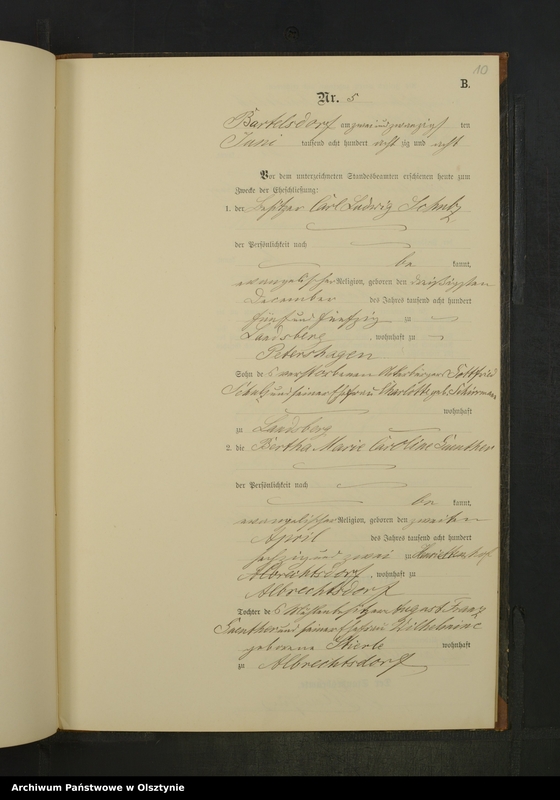 10
B.
Nr. 5
Bartelsdorf am zwei und zwanzigsten
Juni tausend acht hundert acht zig und acht
Vor dem unterzeichneten Standesbeamten erschienen heute zum
Zwecke der Eheschließung:
1. der Besitzer Carl Ludwig Schulz
der Persönlichkeit nach
be kannt,
evangelischer Religion, geboren den dreißigsten
December des Jahres tausend acht hundert
fünf und fünfzig zu
Landsberg, wohnhaft zu
Petershagen
Sohn des verstorbenen Ackerbürgers Gottfried
Schulz und seiner Ehefrau Charlotte geb. Schirrmann
wohnhaft
zu Landsberg
2. die Bertha Marie Caroline Guenther
der Persönlichkeit nach
be kannt,
evangelischer Religion, geboren den zweiten
April des Jahres tausend acht hundert
sechzig und zwei zu
Albrechtsdorf, wohnhaft zu
Albrechtsdorf
Tochter des Mühlenbesitzers August Franz
Guenther und seiner Ehefrau Wilhelmine
geborene wohnhaft
zu Albrechtsdorf
Archiwum Państwowe w Olsztynie